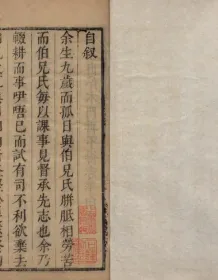 自叙
余生九歳而孤日與伯兄氏胼胝相勞苦
而伯兄氏每以課事見督承先志也余乃
輟耕而事咿唔已而試有司不利欲棄去